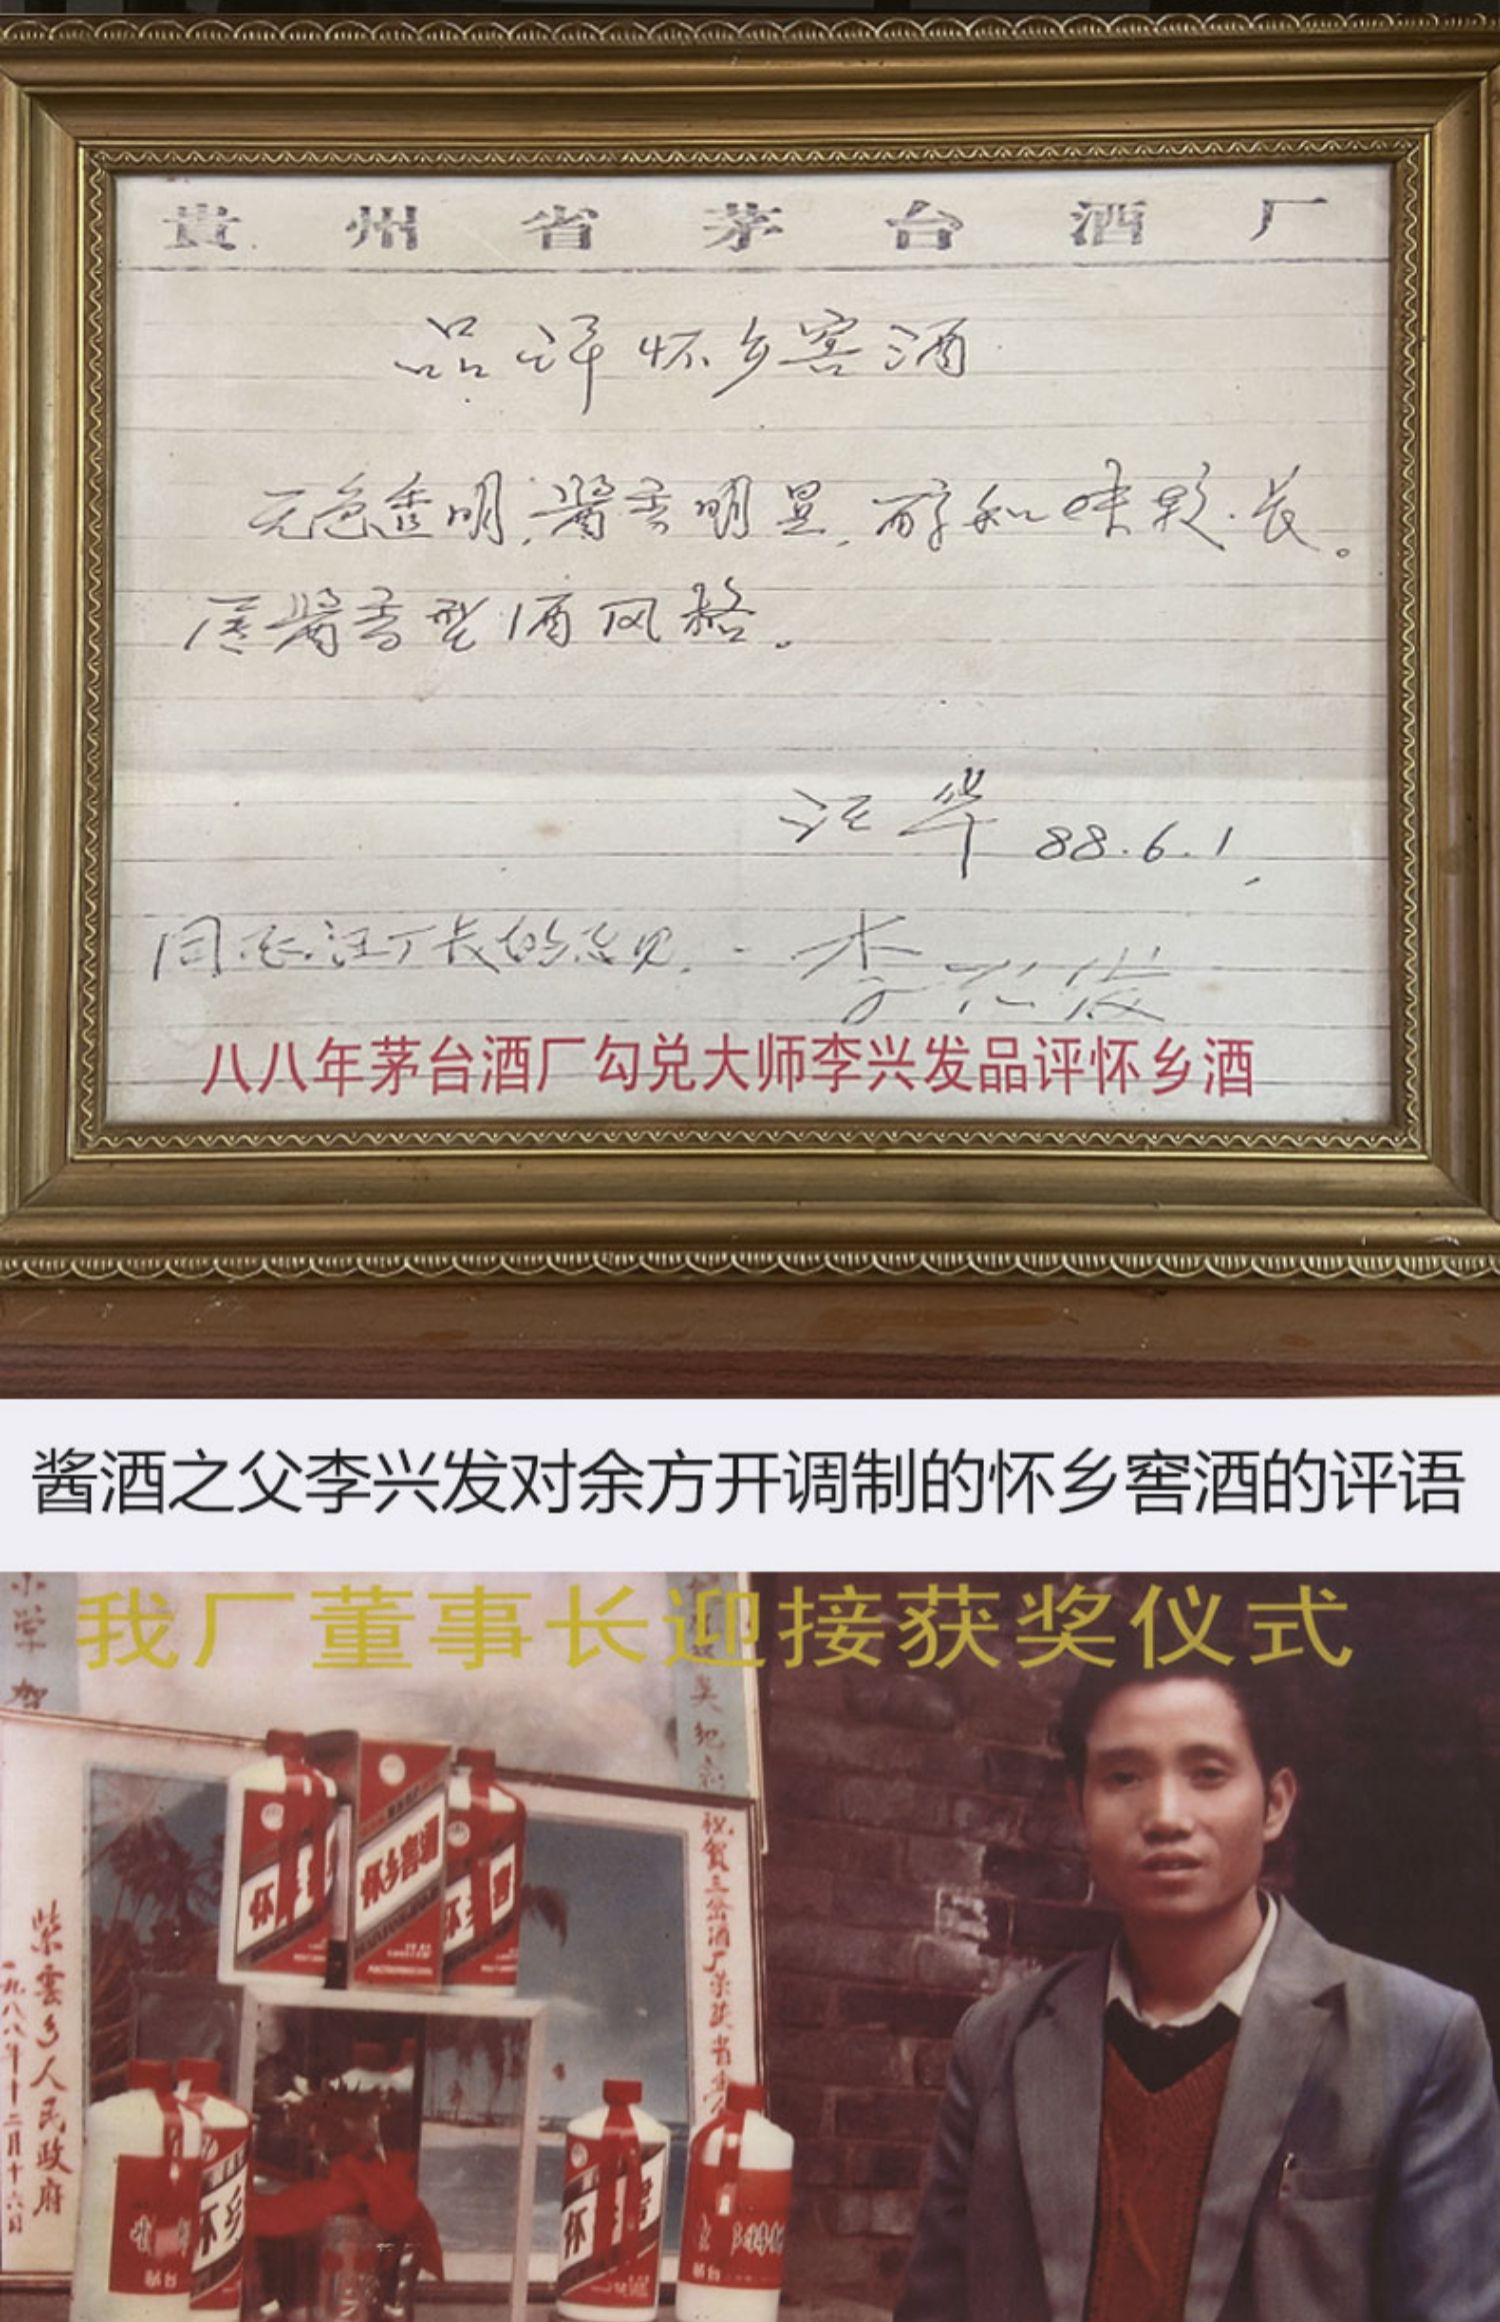 贵州省茅台酒厂
品评怀乡窖酒
无色透明,酱香明显,醇和味较长。
属酱香型酒风格。
汪华 88.6.1
同意汪厂长的意见. 李兴发
八八年茅台酒厂勾兑大师李兴发品评怀乡酒
酱酒之父李兴发对余方开调制的怀乡窖酒的评语
我厂董事长迎接获奖仪式
小学 贺
奖纪念
祝贺三岔酒厂荣获省
怀乡窖酒
紫雲乡人民政府
一九八八年十二月十六日
怀乡
怀 窖
茅台
茅台